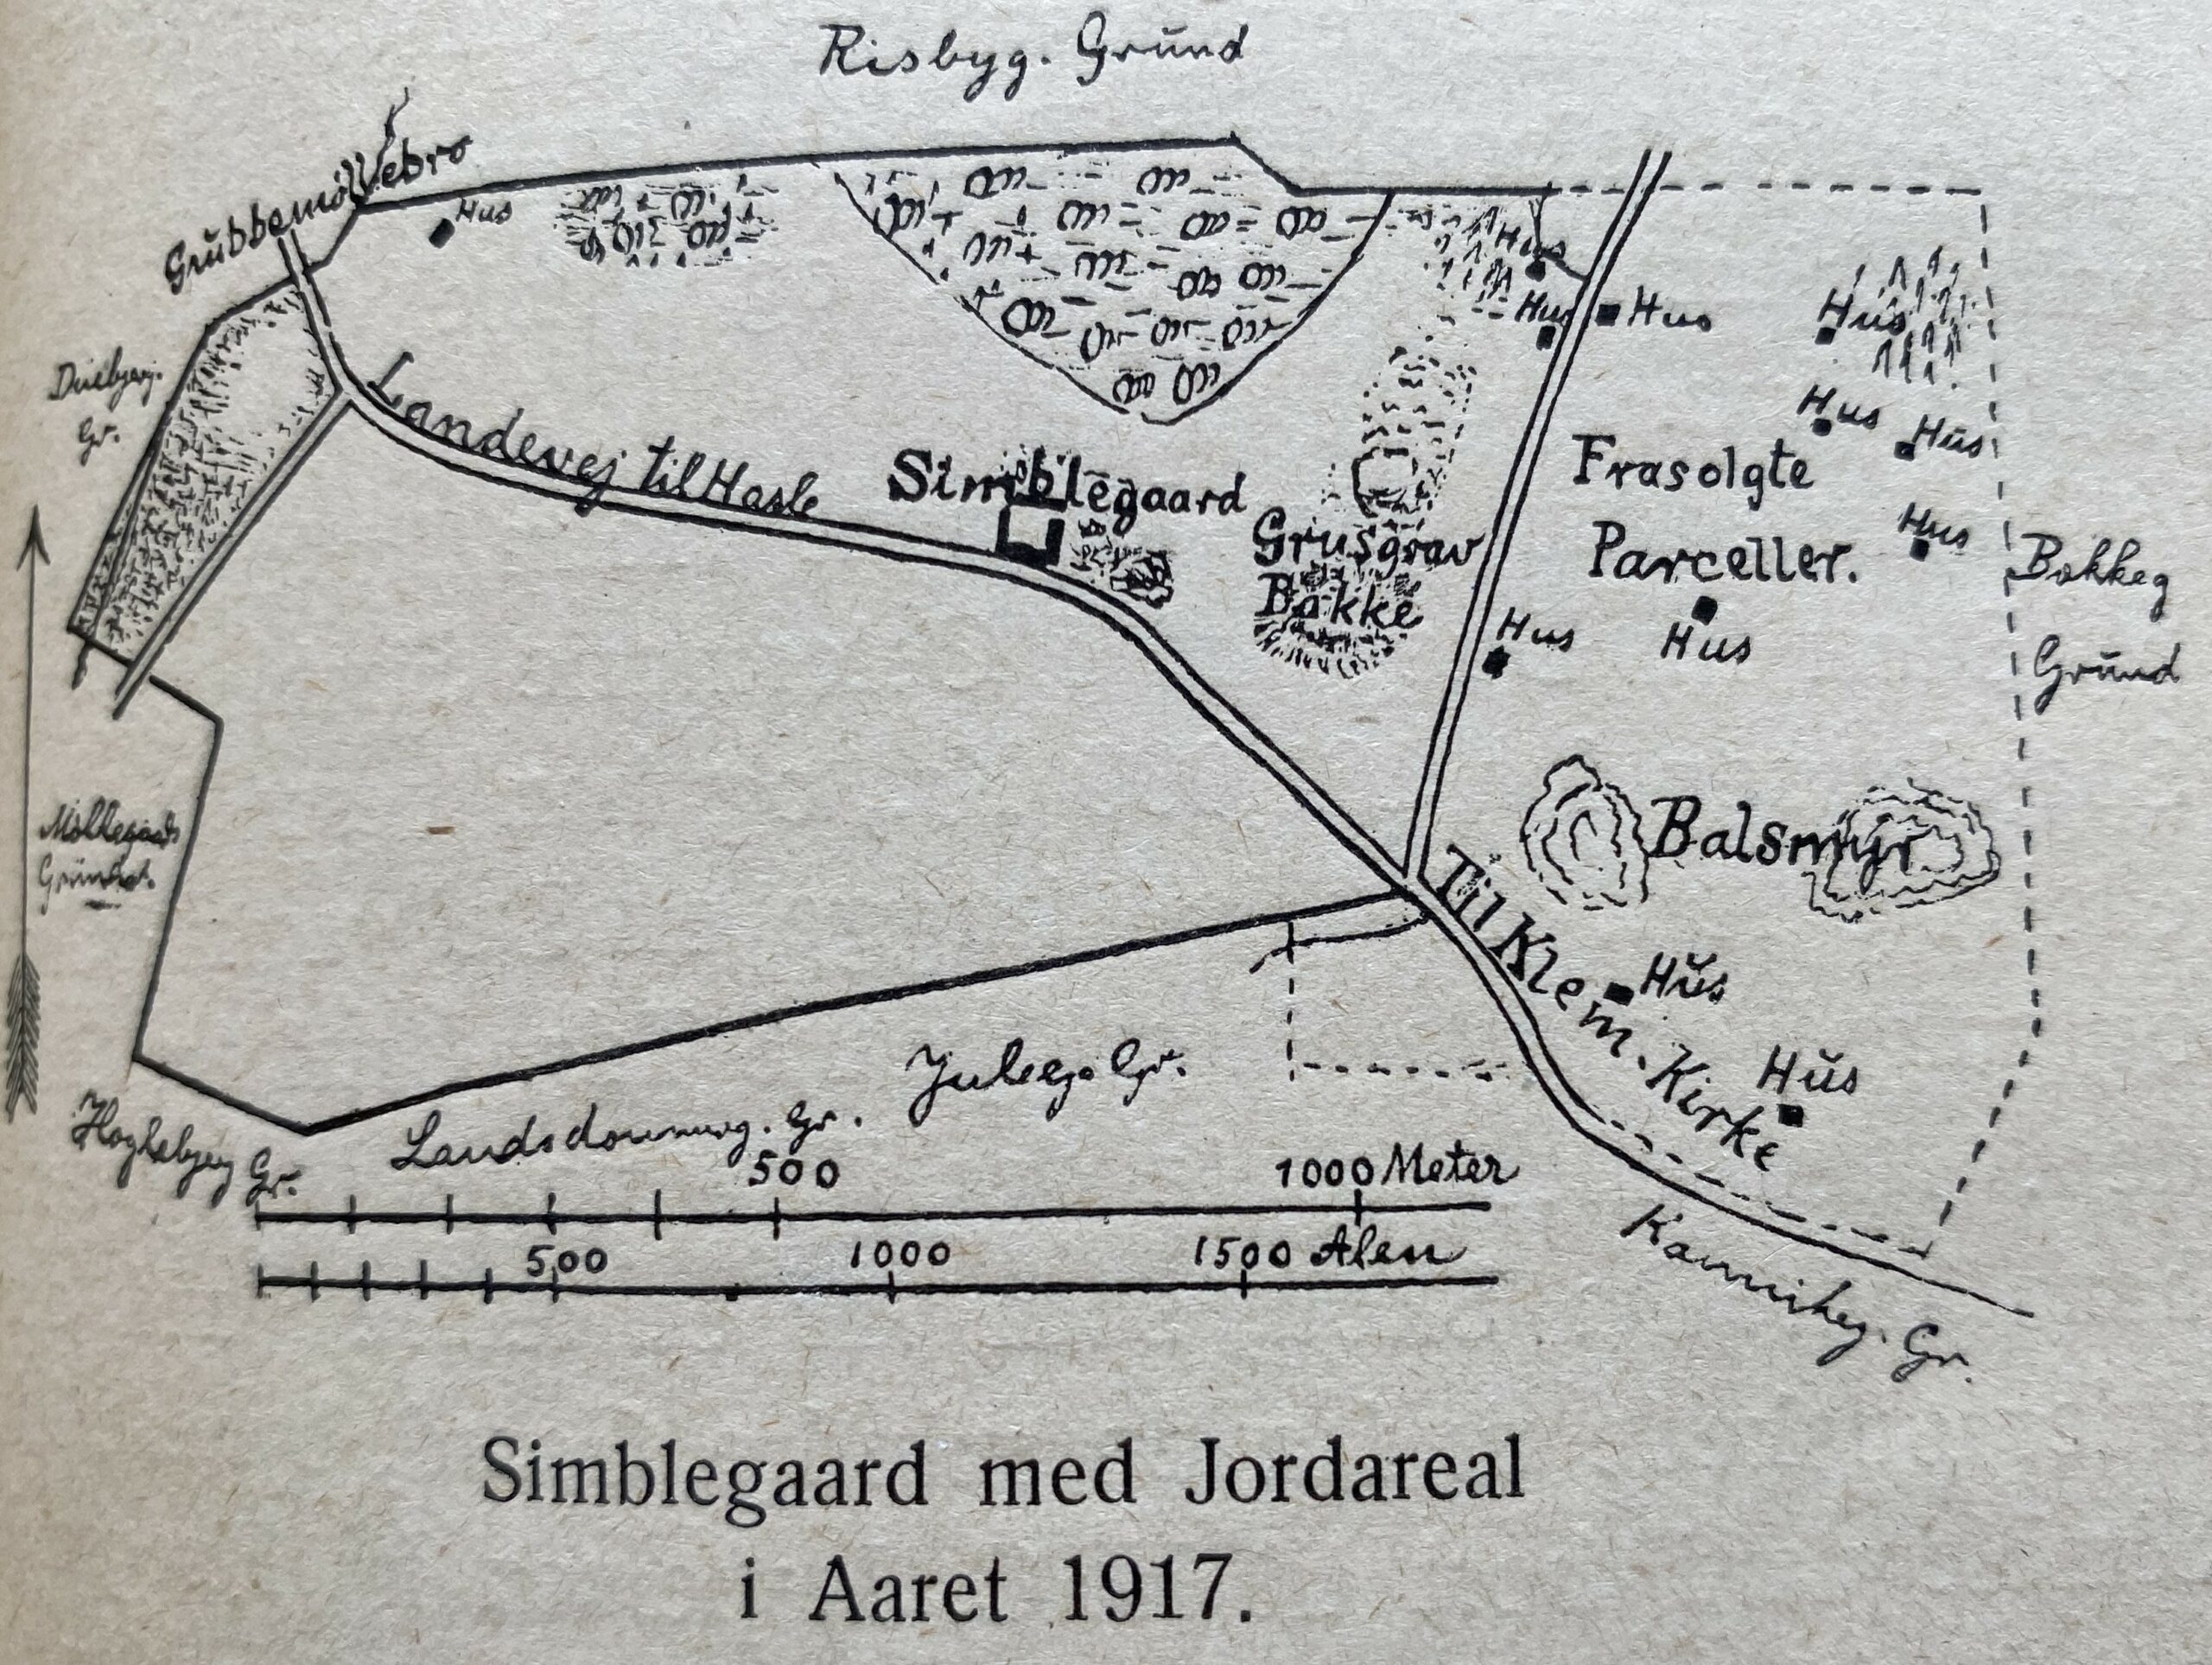 Risbyg. Grund
Grubbemöllebro
Hus
Hus
Hus
Hus
Hus
Hus
Hus
Hus
Duebjerg.
Gr.
Landevej til Hasle
Simblegaard
Grusgrav
Bakke
Frasolgte
Parceller.
Bakkeg
Grund
Hus
Hus
Möllegaards
Grund.
Balsmyr
Til Klem. Kirke
Hus
Hus
Juleg. Gr.
Gr.
Gr.
500 1000 Meter
500 1000 1500 Alen
Kannikeg. Gr.
Simblegaard med Jordareal
i Aaret 1917.